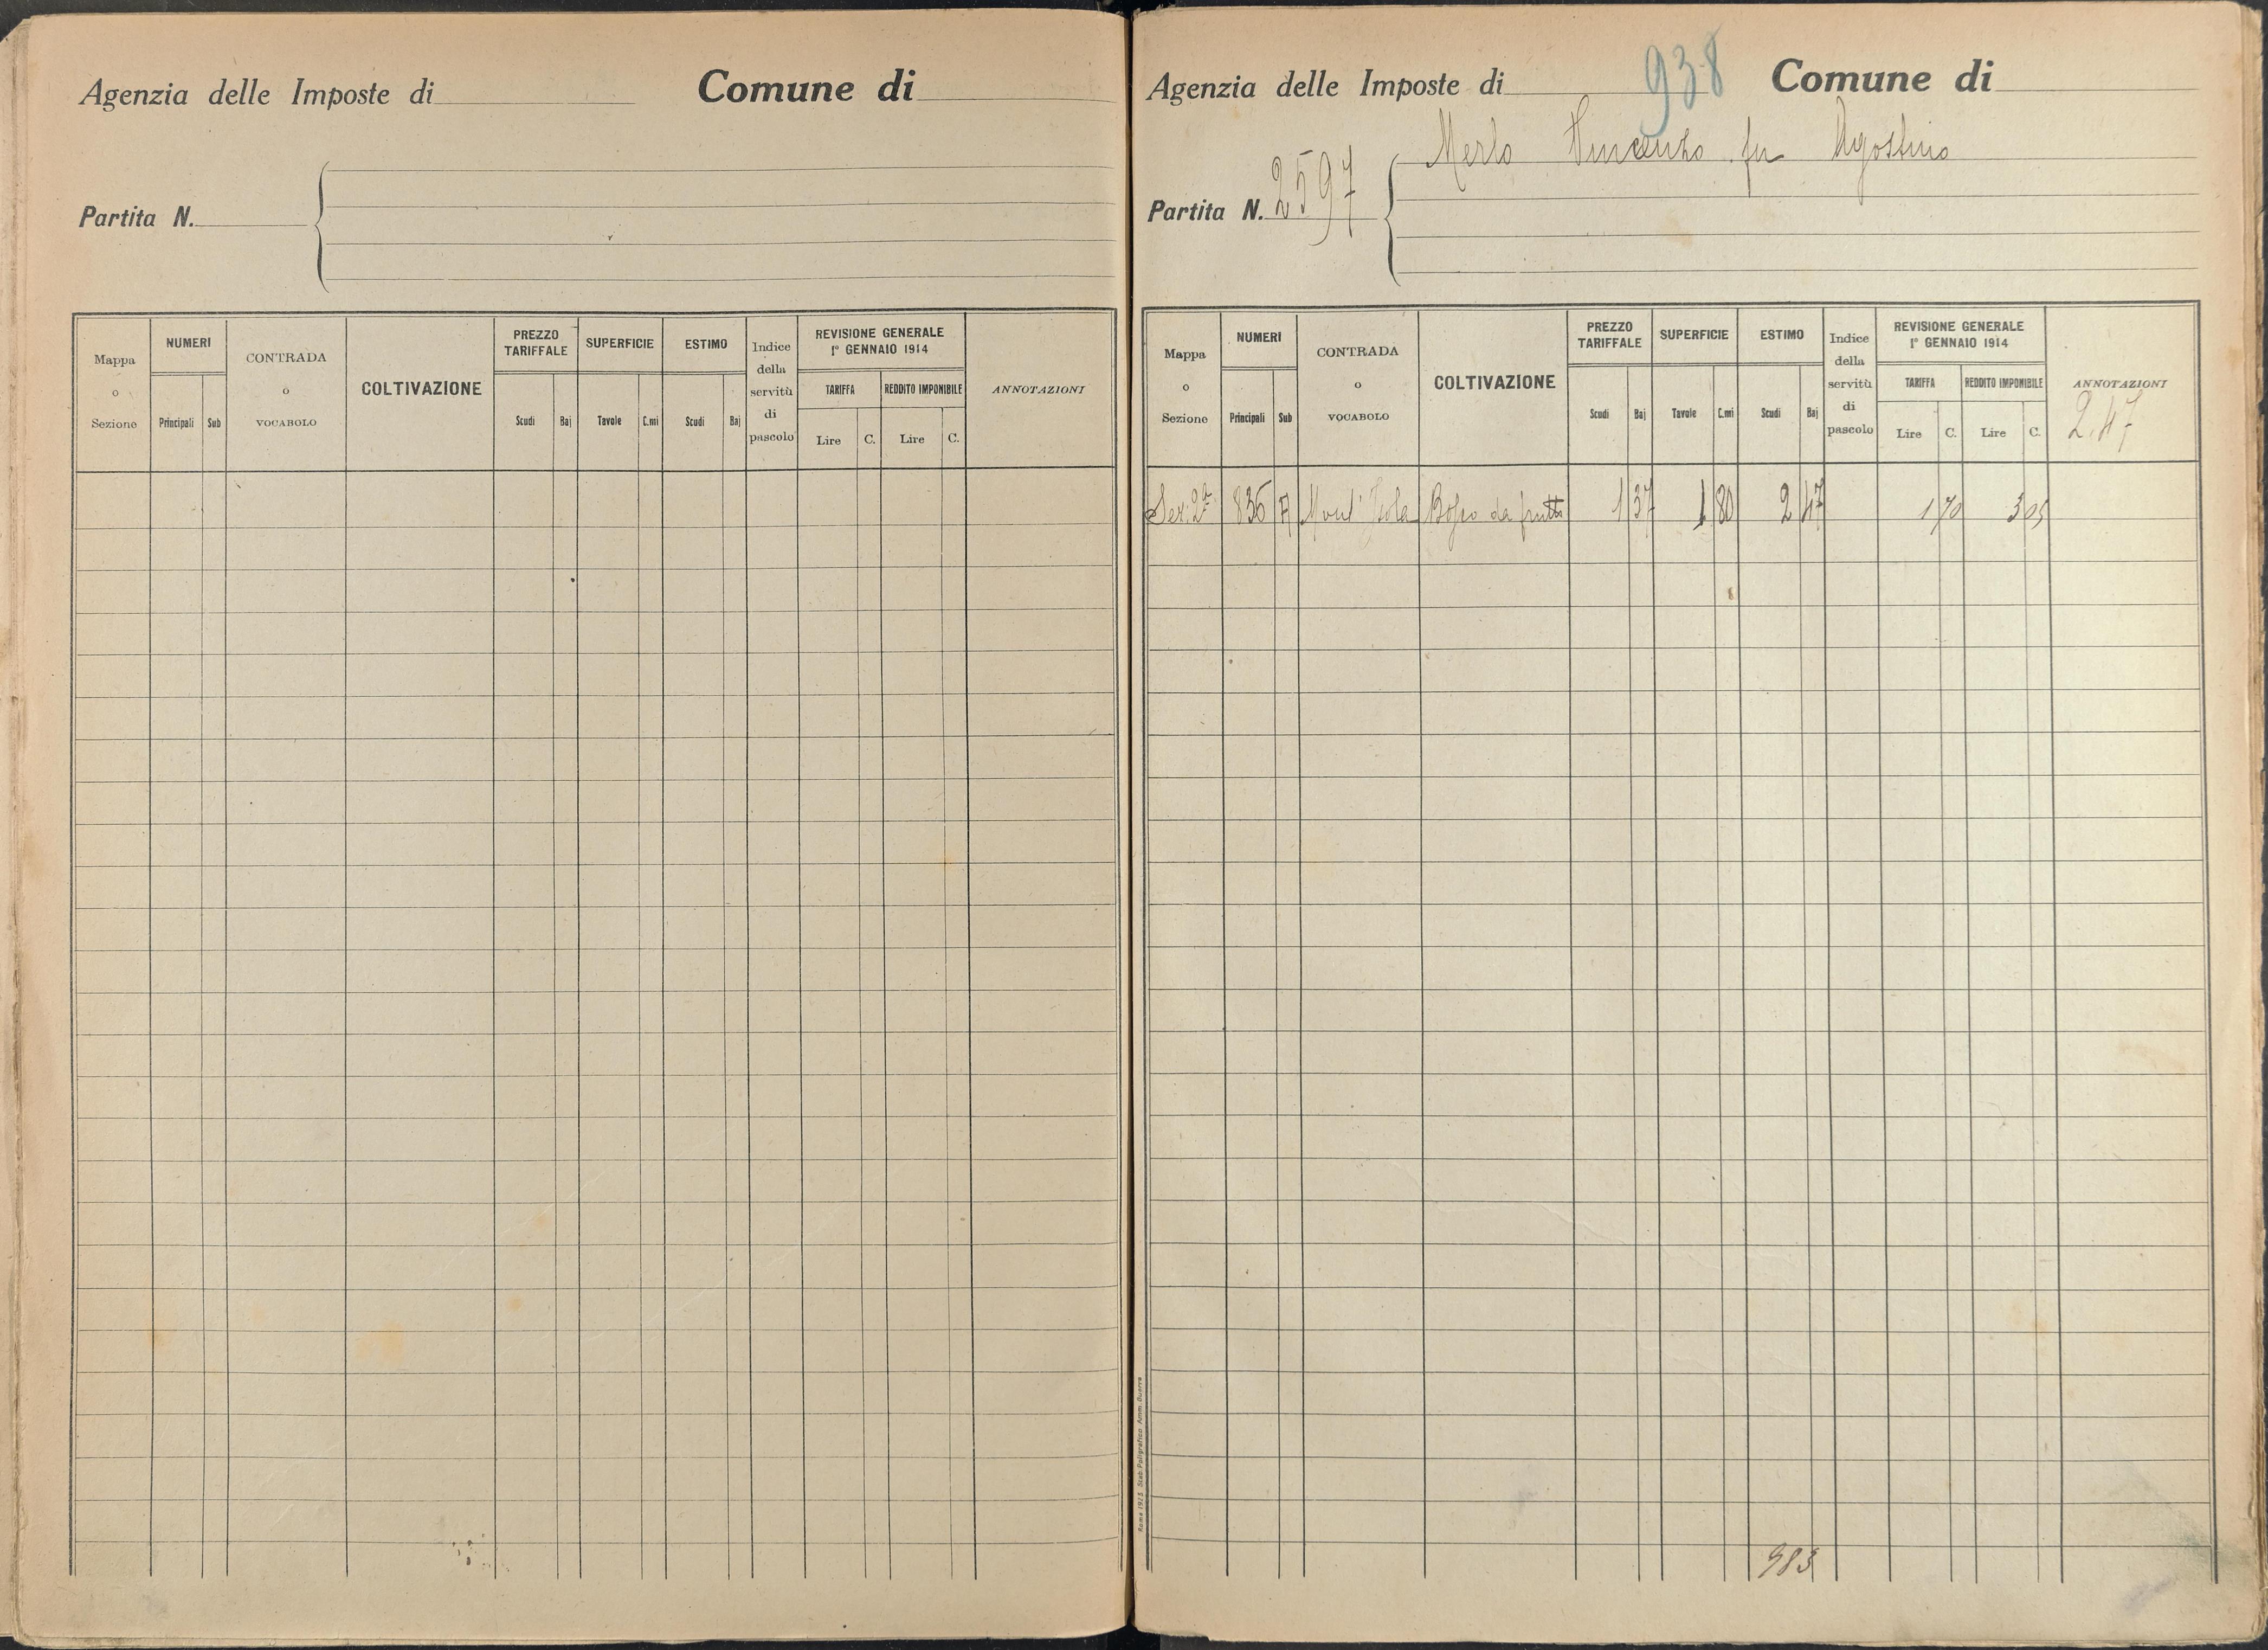 Agenzia delle Imposte di Comune di
Partita N.
Mappa o Sezione NUMERI Principali Sub CONTRADA o VOCABOLO COLTIVAZIONE PREZZO TARIFFALE Scudi Baj SUPERFICIE Tavole C.mi ESTIMO Scudi Baj Indice della servitù di pascolo REVISIONE GENERALE 1° GENNAIO 1914 TARIFFA Lire C. REDDITO IMPONIBILE Lire C. ANNOTAZIONI
938
Agenzia delle Imposte di Comune di
Merlo Vincenzo fu Agostino
Partita N. 2597
Mappa o Sezione NUMERI Principali Sub CONTRADA o VOCABOLO COLTIVAZIONE PREZZO TARIFFALE Scudi Baj SUPERFICIE Tavole C.mi ESTIMO Scudi Baj Indice della servitù di pascolo REVISIONE GENERALE 1° GENNAIO 1914 TARIFFA Lire C. REDDITO IMPONIBILE Lire C. ANNOTAZIONI
2.47
Sez. 2ª 836 A Mont' Isola Bosco da frutto 1 37 1 80 2 47 1 70 3 05
983
Roma 1923 Stab. Poligrafico Amm. Guerra